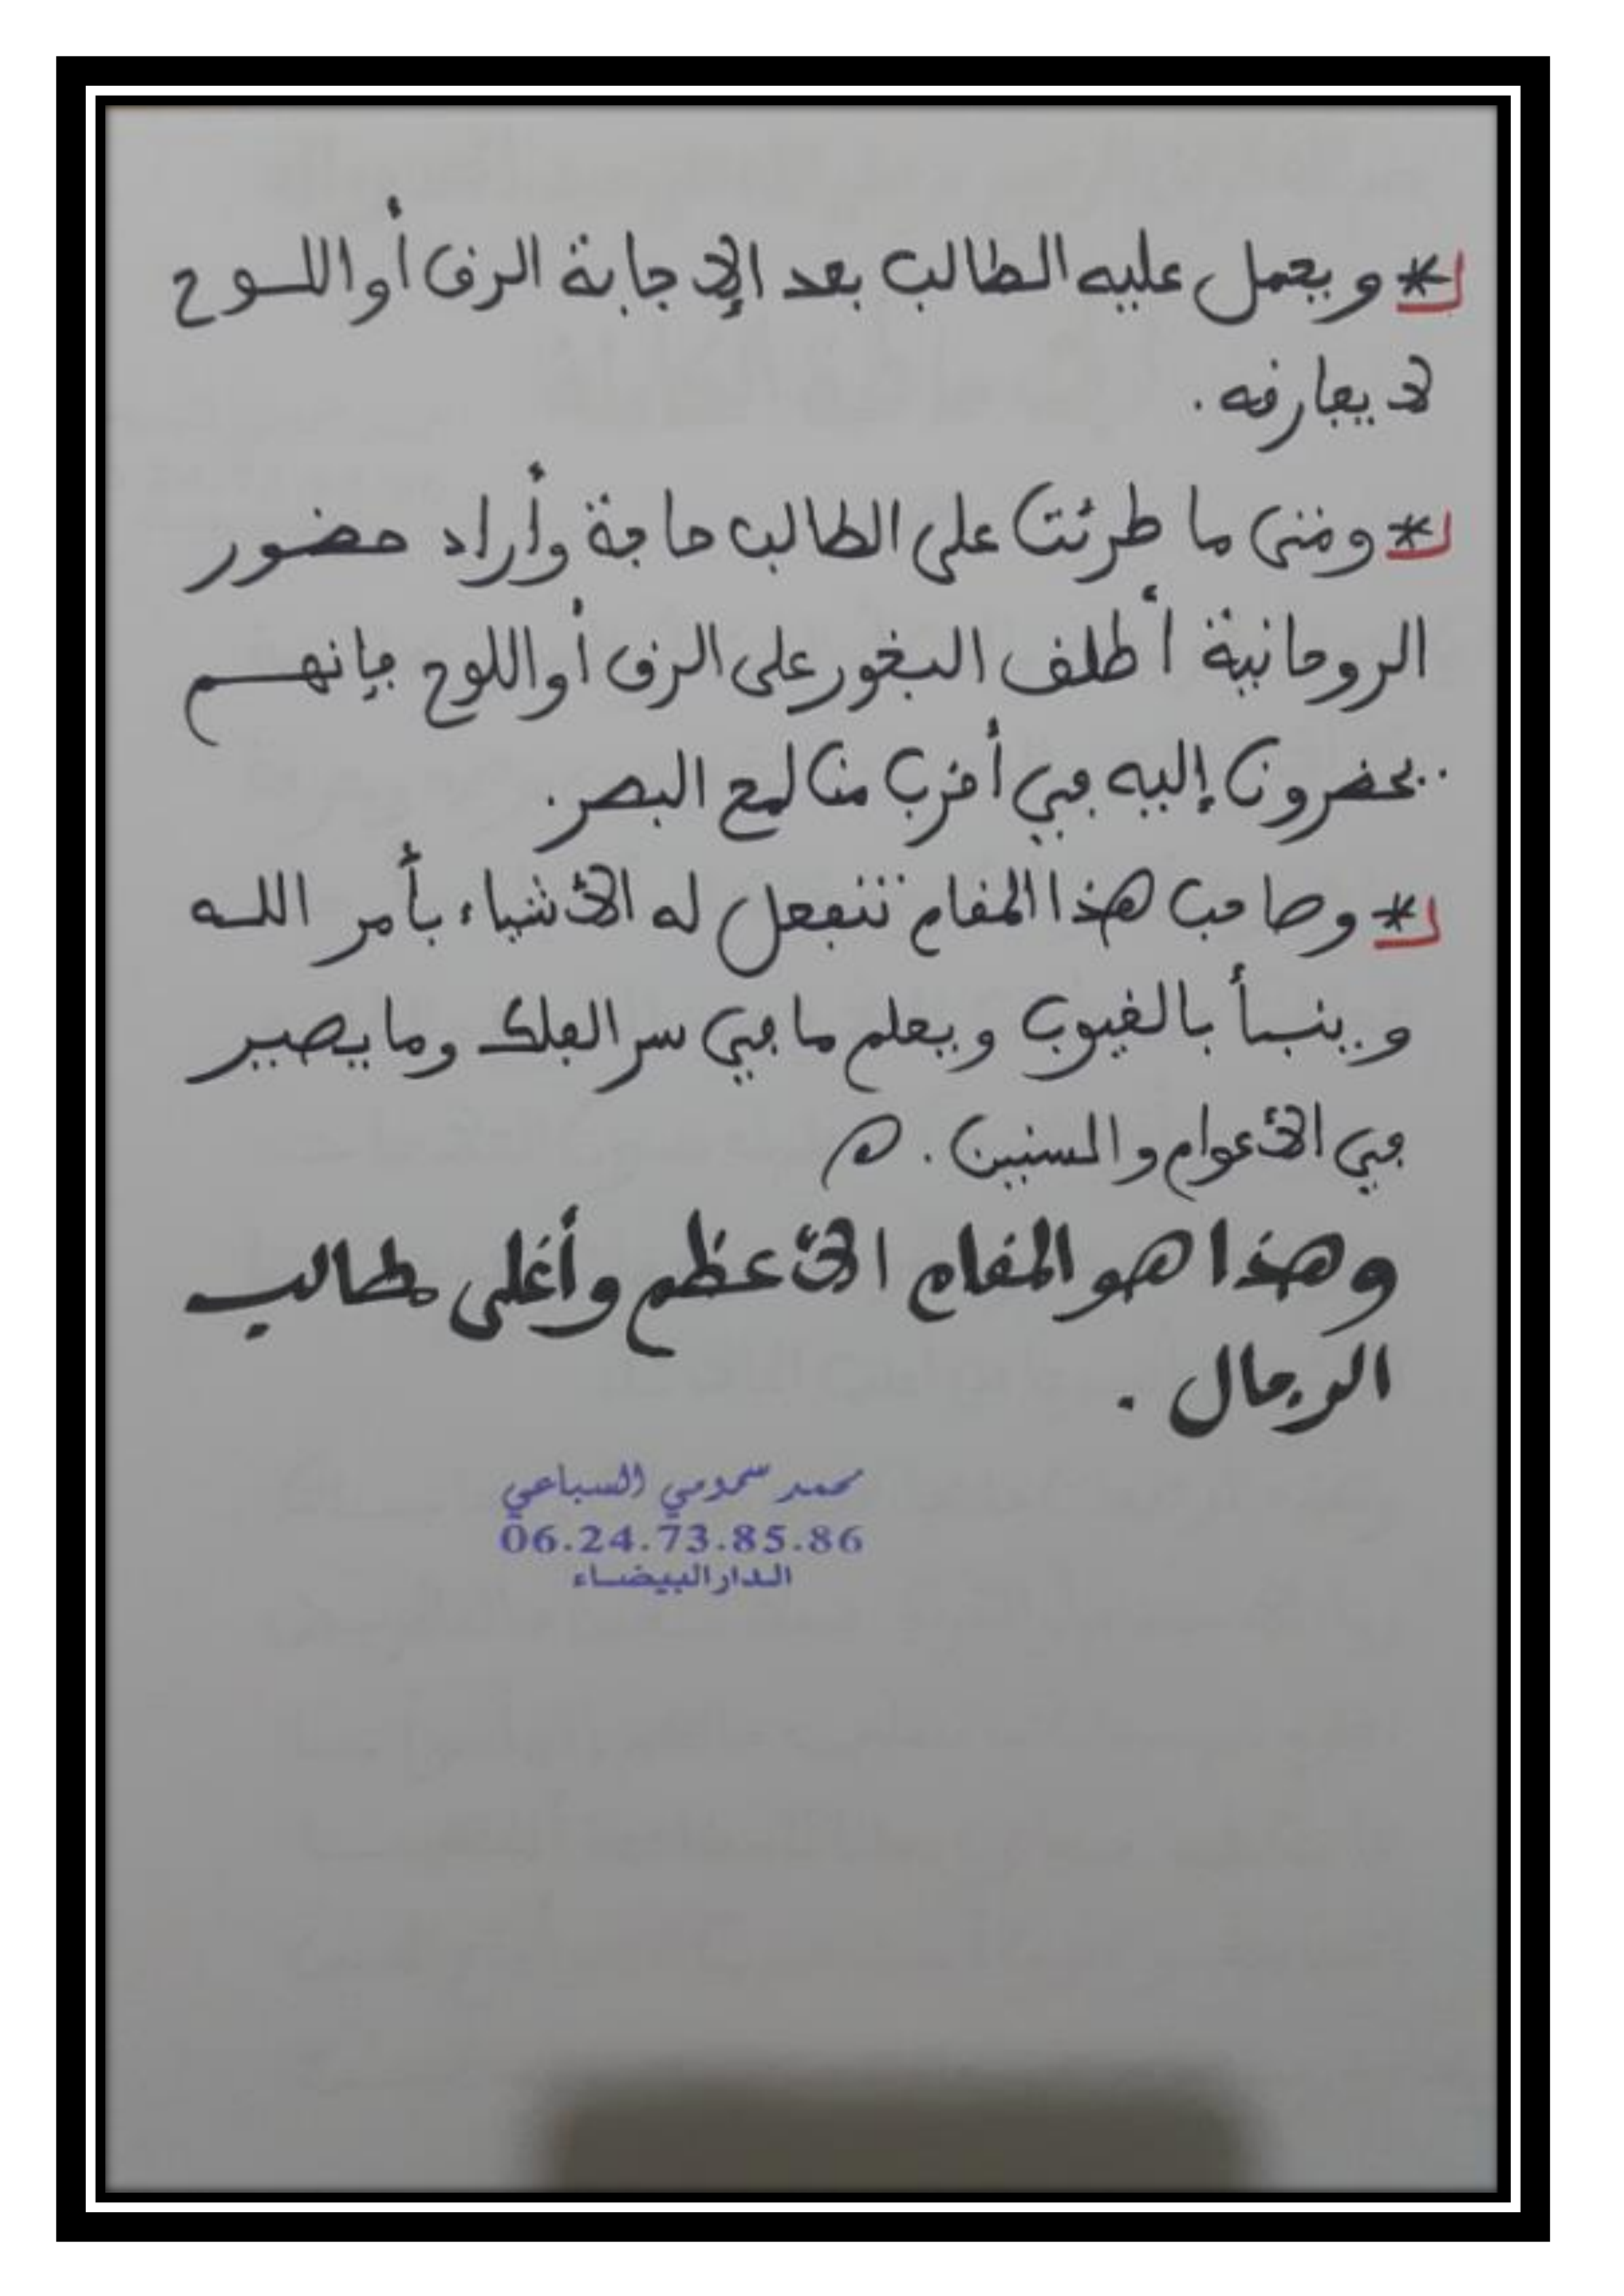 * ويعمل عليه الطالب بعد الإجابة الرق أو اللوح
لا يفارقه.
* ومتى ما طرئت على الطالب حاجة وأراد حضور
الروحانية أطلق البخور على الرق أو اللوح فإنهم
يحضرون إليه في أقرب من لمع البصر.
* وصاحب هذا المقام تنفعل له الأشياء بأمر الله
وينبأ بالغيوب ويعلم ما في سر الفلك وما يصير
في الأعوام والسنين. ه
وهذا هو المقام الأعظم وأغلى مطالب
الرجال.
محمد سمومي السباعي
06.24.73.85.86
الدار البيضاء